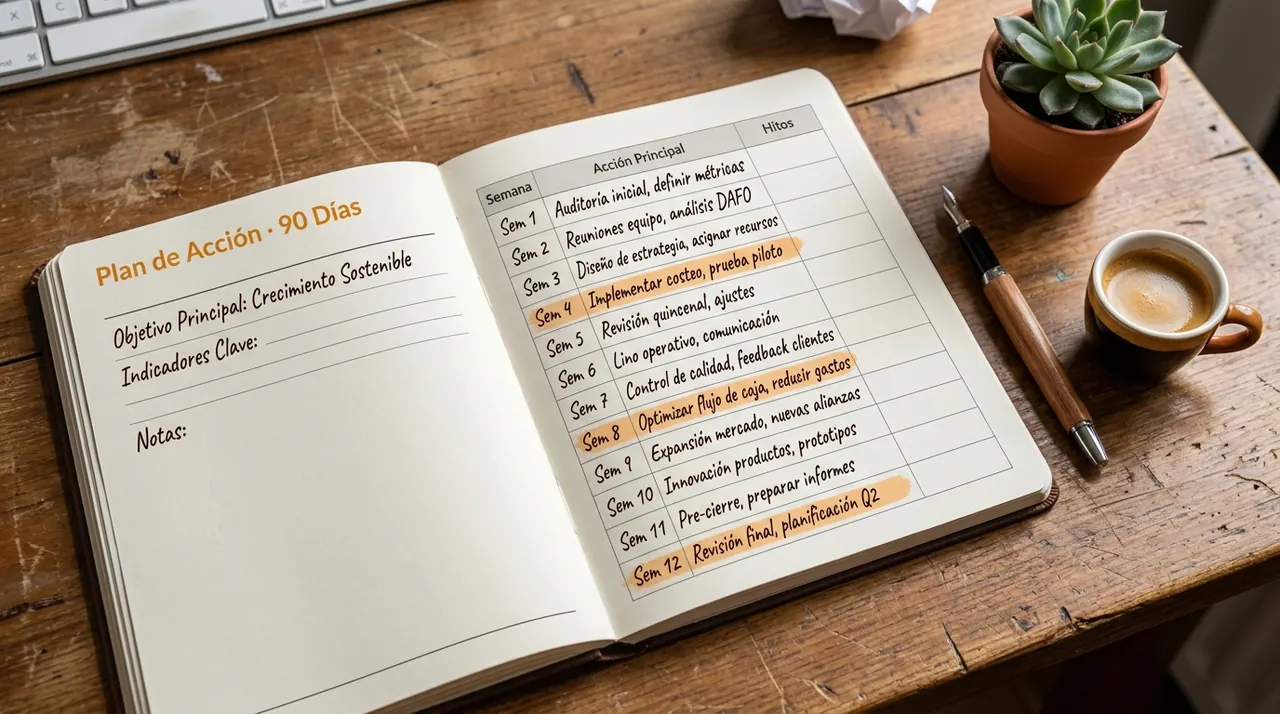 Plan de Acción · 90 Días
Objetivo Principal: Crecimiento Sostenible
Indicadores Clave:
Notas:
Semana Acción Principal Hitos
Sem 1 Auditoría inicial, definir métricas
Sem 2 Reuniones equipo, análisis DAFO
Sem 3 Diseño de estrategia, asignar recursos
Sem 4 Implementar costeo, prueba piloto
Sem 5 Revisión quincenal, ajustes
Sem 6 Lino operativo, comunicación
Sem 7 Control de calidad, feedback clientes
Sem 8 Optimizar flujo de caja, reducir gastos
Sem 9 Expansión mercado, nuevas alianzas
Sem 10 Innovación productos, prototipos
Sem 11 Pre-cierre, preparar informes
Sem 12 Revisión final, planificación Q2